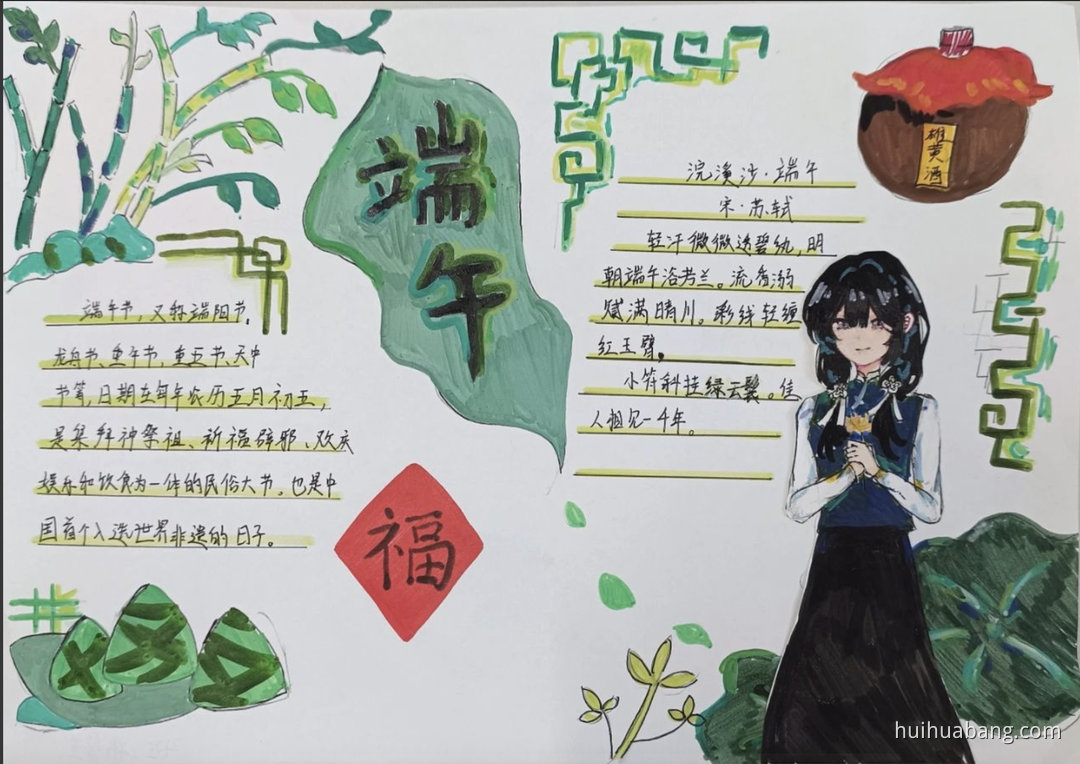 端午
端午节，又称端阳节，
龙舟节、重午节、重五节、天中
节等，日期在每年农历五月初五，
是集拜神祭祖、祈福辟邪、欢庆
娱乐和饮食为一体的民俗大节。也是中
国首个入选世界非遗的日子。
福
浣溪沙·端午
宋·苏轼
轻汗微微透碧纨，明
朝端午浴芳兰。流香涨
腻满晴川。彩线轻缠
红玉臂，
小符斜挂绿云鬟。佳
人相见一千年。
雄黄酒
huihuabang.com